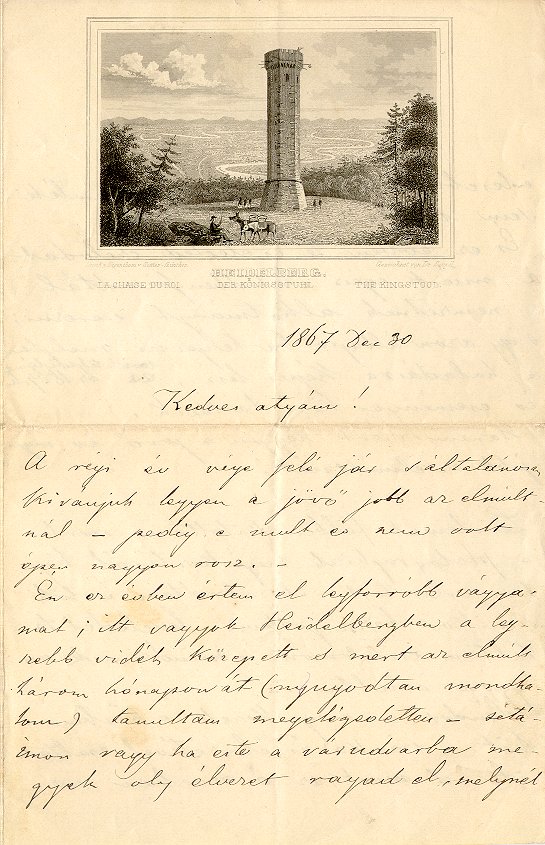 HEIDELBERG.
LA CHAISE DU ROI. DER KÖNIGSSTUHL. THE KINGSTOOL.
1867 Dec 30
Kedves atyám!
A régi év vége felé jár s általánosan
kivánjuk legyen a jövő jobb az elmult-
nál – pedig e mult év nem volt
épen nagyon rosz. –
En ez évben értem el legforróbb vágya-
mat; itt vagyok Heidelbergben a leg-
szebb vidék közepett s mert az elmúlt
három hónapon át (nyugodtan mondha-
tom) tanultam megelégedetten – sétá-
imon vagy ha este a várudvarba me-
gyek oly élvezet ragad el, melynél